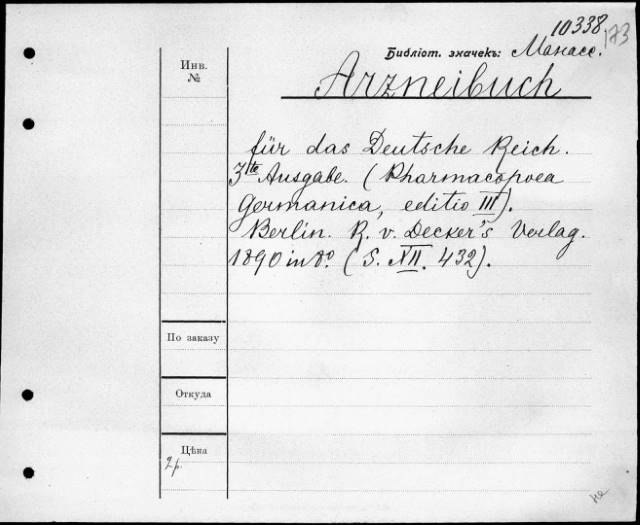 10338.
173
Библіот. значекъ: Манасс.
Инв.
№
Arzneibuch
für das Deutsche Reich.
3te Ausgabe. (Pharmacopoea
Germanica, editio III).
Berlin. R. v. Decker's Verlag.
1890 in 8º. (S. XII. 432).
По заказу
Откуда
Цѣна
2 р.